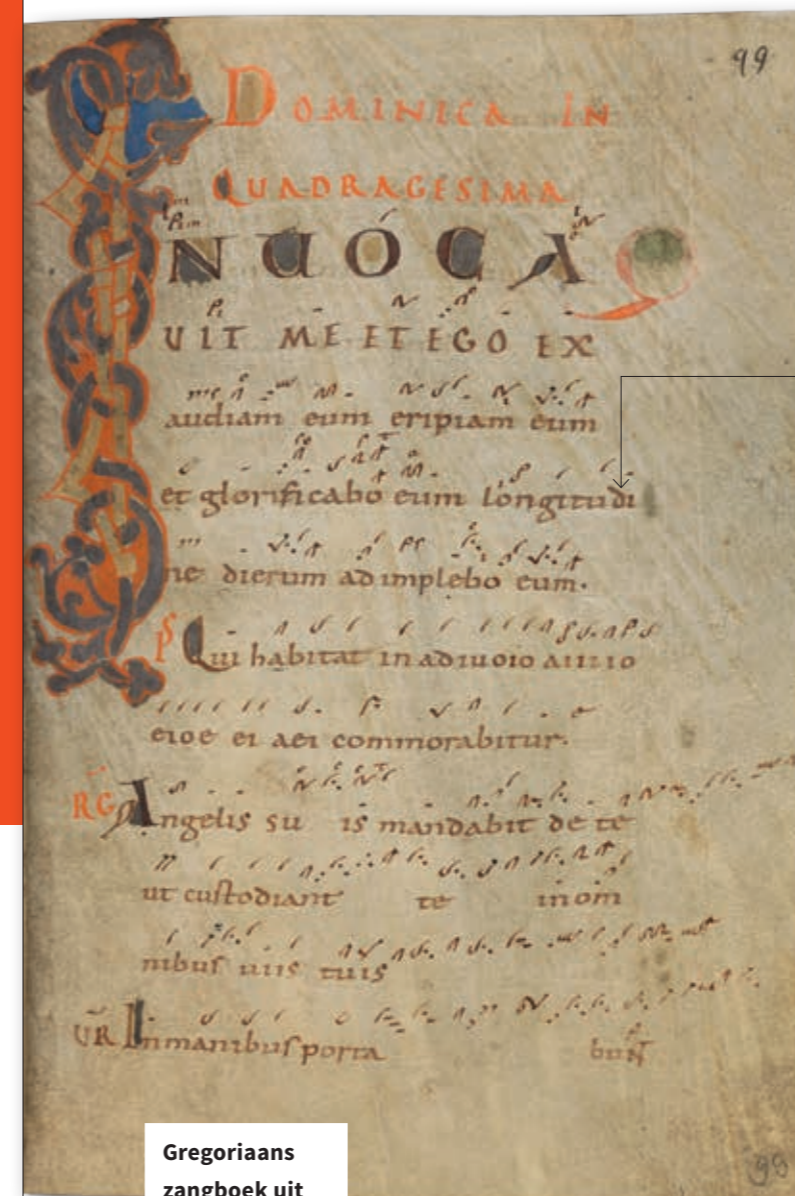 99
DOMINICA IN
QUADRAGESIMA
INUOCA
UIT ME ET EGO EX
audiam eum eripiam eum
et glorificabo eum longitudi
ne dierum adimplebo eum.
PS Qui habitat in
commorabitur.
RG Angelis su is mandabit de te
ut custodiant te in om
nibus uiis tuis
UR In manibus porta bunt
98
Gregoriaans
zangboek uit